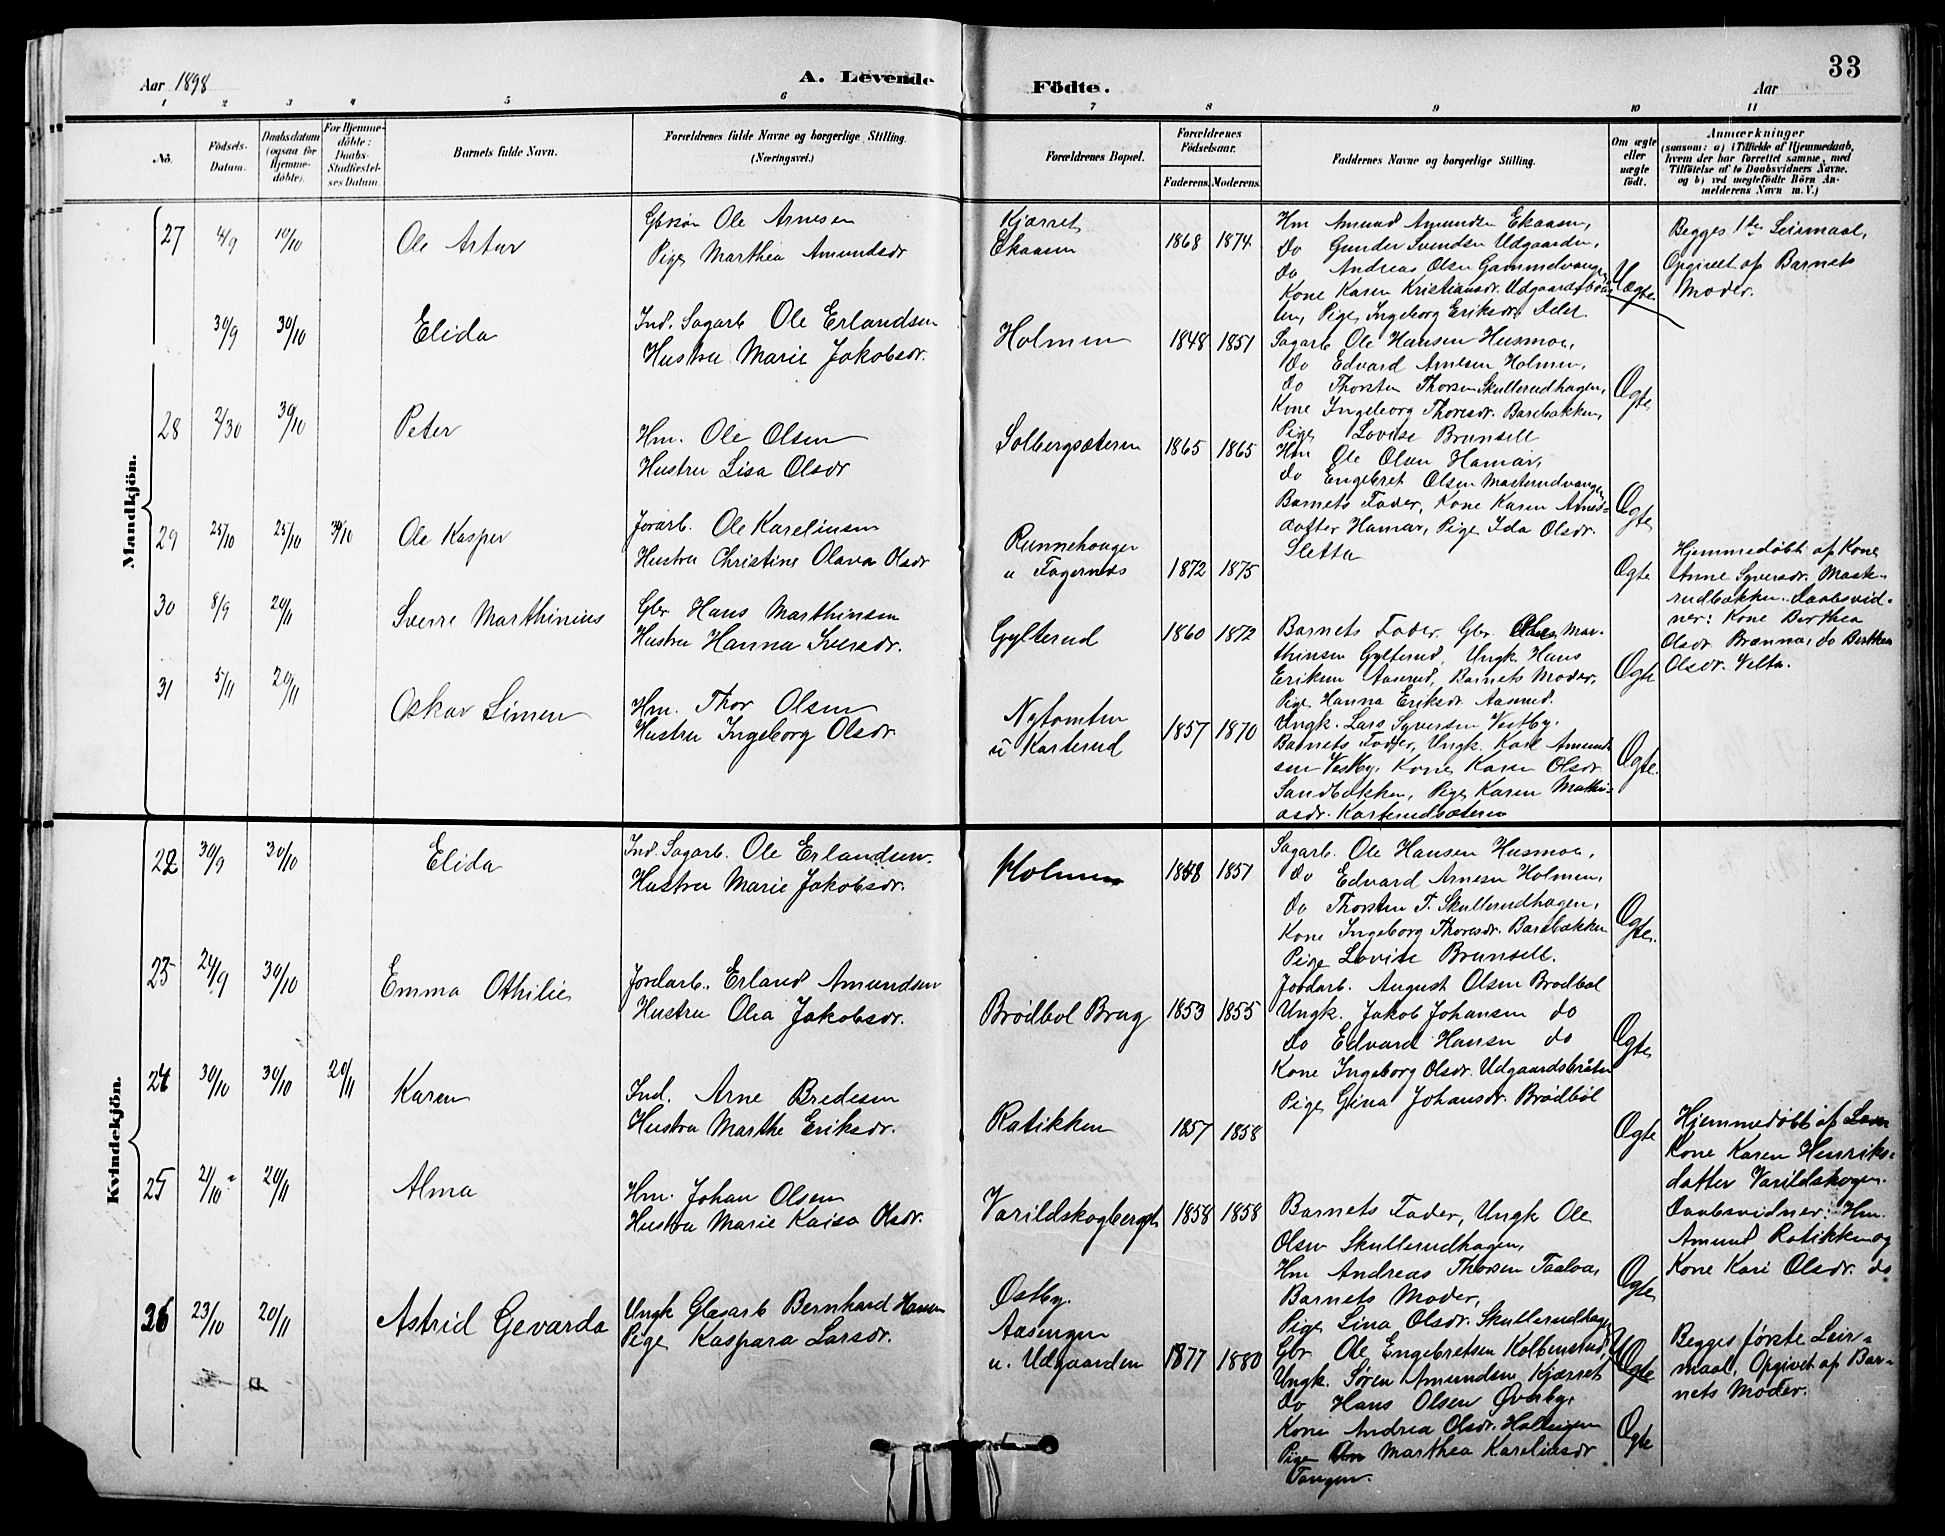 33
Aar 1898
A. Levende Födte.
Aar
1 2 3 4 5 6 7 8 9 10 11
No.
Födsels-
Datum.
Daabsdatum
(ogsaa for
Hjemme-
döbte).
For Hjemme-
döbte:
Daabs-
Stadfæstel-
ses Datum.
Barnets fulde Navn.
Forældrenes fulde Navne og borgerlige Stilling.
(Næringsvei.)
Forældrenes Bopæl.
Forældrenes
Födselsaar.
Faderens. Moderens.
Faddernes Navne og borgerlige Stilling.
Om ægte
eller
uægte
födt.
Anmærkninger
(saasom: a) i Tilfælde af Hjemmedaab,
hvem der har forrettet samme, med
Tilföielse af to Daabsvidners Navne.
og b) ved uægtefödte Börn An-
melderens Navn m. V.)
Mandkjön.
27 4/9 10/10
Ole Artur
Gbrsøn Ole Arnesen
Pige Marthea Amundsdr
Kjærret
Ekaasen
1868 1874
Hm Amund Amundsen Ekaasen,
Do Gunder Svendsen Udgaarden,
do Andreas Olsen Gammelvangen
Kone Karen Kristiansdr. Udgaardsbraa-
ten, Pige Ingeborg Eriksdr.
Uægte
Begges 1ste Leirmaal,
Opgivet af Barnets
Moder.
30/9 30/10
Elida
Ind. Sagarb Ole Erlandsen
Hustru Marie Jakobsdr.
Holmen
1848 1851
Sagarb. Ole Hansen Husmoe,
Do Edvard Arnesen Holmen,
do Thorsten Thorsen Skullerudhagen,
Kone Ingeborg Thoresdr. Barebakken,
Pige Lovise Brunsell
Ægte
28 2/30 30/10
Peter
Hm. Ole Olsen
Hustru Lisa Olsdr
Solbergsæteren
1865 1865
Hm Ole Olsen Hamar,
do Engebret Olsen Masterudvangen
Barnets Fader, Kone Karen Arnes-
datter Hamar, Pige Ida Olsdr.
Sletta
Ægte
29 25/10 25/10 30/10
Ole Kasper
Jorarb. Ole Karelinsen
Hustru Christine Olava Olsdr
Runnehaugen
u Fagernæs
1872 1875
Ægte
Hjemmedøbt af Kone
Anne Syversdr. Maste-
rudbækken. Daabsvid-
ner: Kone Berthea
Olsdr Brænna, do Berthea
Olsdr. Velta.
30 8/9 20/11
Sverre Marthinius
Gbr Hans Marthinsen
Hustru Hanna Iversdr.
Gylterud
1860 1872
Barnets Fader, Gbr. Mar-
thinsen Gylterud, Ungk. Hans
Eriksen Aaserud, Barnets Moder,
Pige Hanna Eriksdr. Aaserud.
Ægte
31 5/11 20/11
Oskar Simen
Hm. Thor Olsen
Hustru Ingeborg Olsdr.
Nytomten
u Karterud
1857 1870
Ungk. Lars Syversen Vestby.
Barnets Fader, Ungk. Karl Amund
sen Vestby, Kone Karen Olsdr
Sandbækken, Pige Karen Mathi-
asdr. Karterudsæteren
Ægte.
Kvindekjön.
22 30/9 30/10
Elida
Ind. Sagarb. Ole Erlandsen.
Hustru Marie Jakobsdr.
Holmen
1848 1851
Sagarb. Ole Hansen Husmoe,
Do Edvard Arnesen Holmen,
do Thorsten T. Skullerudhagen,
Kone Ingeborg Thoresdr. Barebækken
Pige Lovise Brunsell.
Ægte.
23 24/9 30/10
Emma Othilie
Jordarb. Erland Amundsen
Hustru Olea Jakobsdr.
Brödbøl Brug
1853 1855
Jordarb. August Olsen Brødbøl
Ungk. Jakob Johansen do
do Edvard Hansen do
Kone Ingeborg Olsdr. Udgaardsbråten
Pige Gina Johansdr. Brödböl
Ægte
24 30/10 30/10 20/11
Karen
Ind. Arne Bredesen
Hustru Marthe Eriksdr.
Ratikken
1857 1858
Ægte
Hjemmedøbt af
Kone Karen Henriks-
datter Varildskogen.
Daabsvidner: Hm.
Amund Ratikken og
Kone Kari Olsdr. do
25 21/10 20/11
Alma
Hm. Johan Olsen
Hustru Marie Kaisa Olsdr.
Varildskogberget
1858 1858
Barnets Fader, Ungk Ole
Olsen Skullerudhagen,
Hm Andreas Thorsen Taalva,
Barnets Moder,
Pige Lina Olsdr. Skullerudhagen
Ægte
26 23/10 20/11
Astrid Gevarda
Ungk Glasarb Bernhard Hansen
Pige Kaspara Larsdr.
Østby.
Aasengen
u. Udgaarden
1877 1880
Gbr Ole Engebretsen Kolbensrud,
Ungk. Sören Amundsen Kjærret
do Hans Olsen Øvreby,
Kone Andrea Olsdr.
Pige Marthea Karelinsdr
Tangen.
Uægte
Ægte
Begges første Leir-
maal, Opgivet af Bar-
nets Moder.